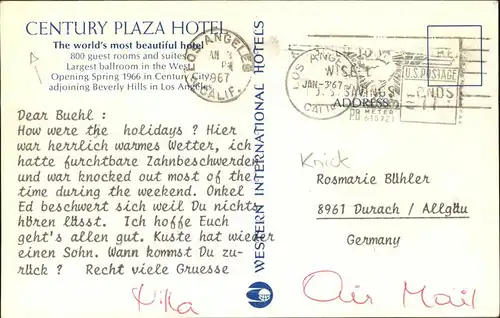 CENTURY PLAZA HOTEL
The world's most beautiful hotel
800 guest rooms and suites
Largest ballroom in the West
Opening Spring 1966 in Century City
adjoining Beverly Hills in Los Angeles
Dear Buehl :
How were the holidays ? Hier
war herrlich warmes Wetter, ich
hatte furchtbare Zahnbeschwerden
und war knocked out most of the
time during the weekend. Onkel
Ed beschwert sich weil Du nichts
hören lässt. Ich hoffe Euch
geht's allen gut. Kuste hat wieder
einen Sohn. Wann kommst Du zu-
rück ? Recht viele Gruesse
WESTERN INTERNATIONAL HOTELS
LOS ANGELES
PM
1967
CALIF.
LOS ANGELES
JAN-3'67
CALIF
U.S. SAVINGS
U.S. POSTAGE
ADDRESS
PB METER
Rosmarie Bühler
8961 Durach / Allgäu
Germany
Air Mail